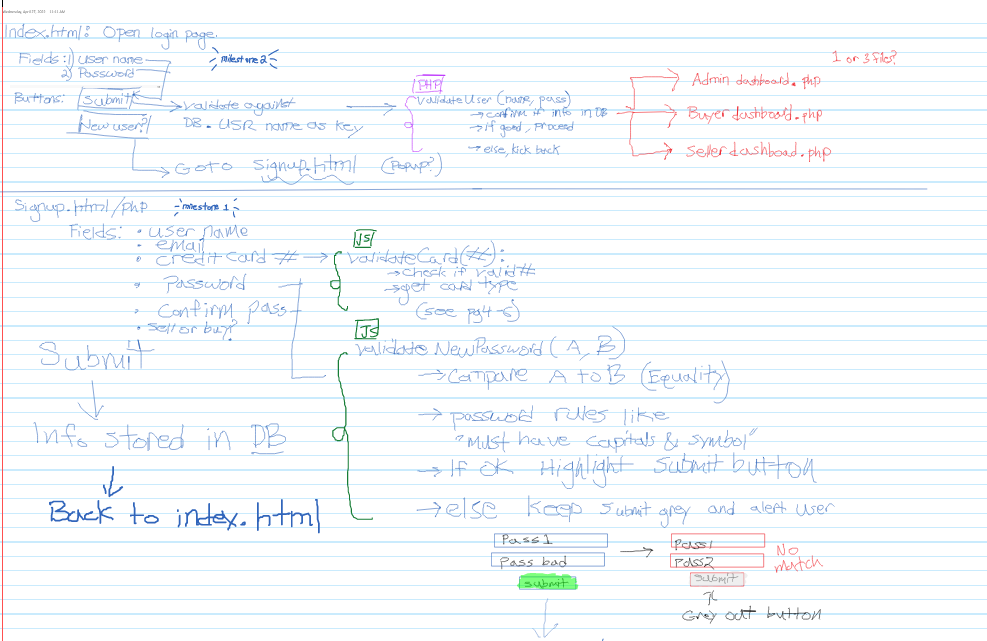 Wednesday, April 27, 2022 11:51 AM
Index.html: Open login page.
Fields: 1) user name
2) Password
milestone 2
Buttons: Submit
New user?
validate against
DB. USR name as key
Goto signup.html (Popup?)
PHP
validateUser (name, pass)
→ confirm if info in DB
→ if good, proceed
→ else, kick back
1 or 3 files?
Admin dashboard.php
Buyer dashboard.php
Seller dashboard.php
Signup.html/php
milestone 1
Fields: • user name
• email
• credit card #
• Password
• Confirm pass
• sell or buy?
JS
validateCard(#):
→ check if valid #
→ get card type
(see pg 4-6)
JS
validateNewPassword(A, B)
→ Compare A to B (Equality)
→ password rules like
"Must have capitals & symbol"
→ If ok Highlight submit button
→ else keep submit grey and alert user
Submit
Info stored in DB
Back to index.html
Pass1
Pass bad
submit
Pass1
Pass2
submit
No match
Grey out button